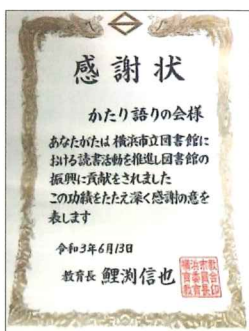 感謝状
かたり語りの会様
あなたがたは横浜市立図書館に
おける読書活動を推進し図書館の
振興に貢献をされました
この功績をたたえ深く感謝の意を
表します
令和3年6月13日
教育長 鯉渕信也